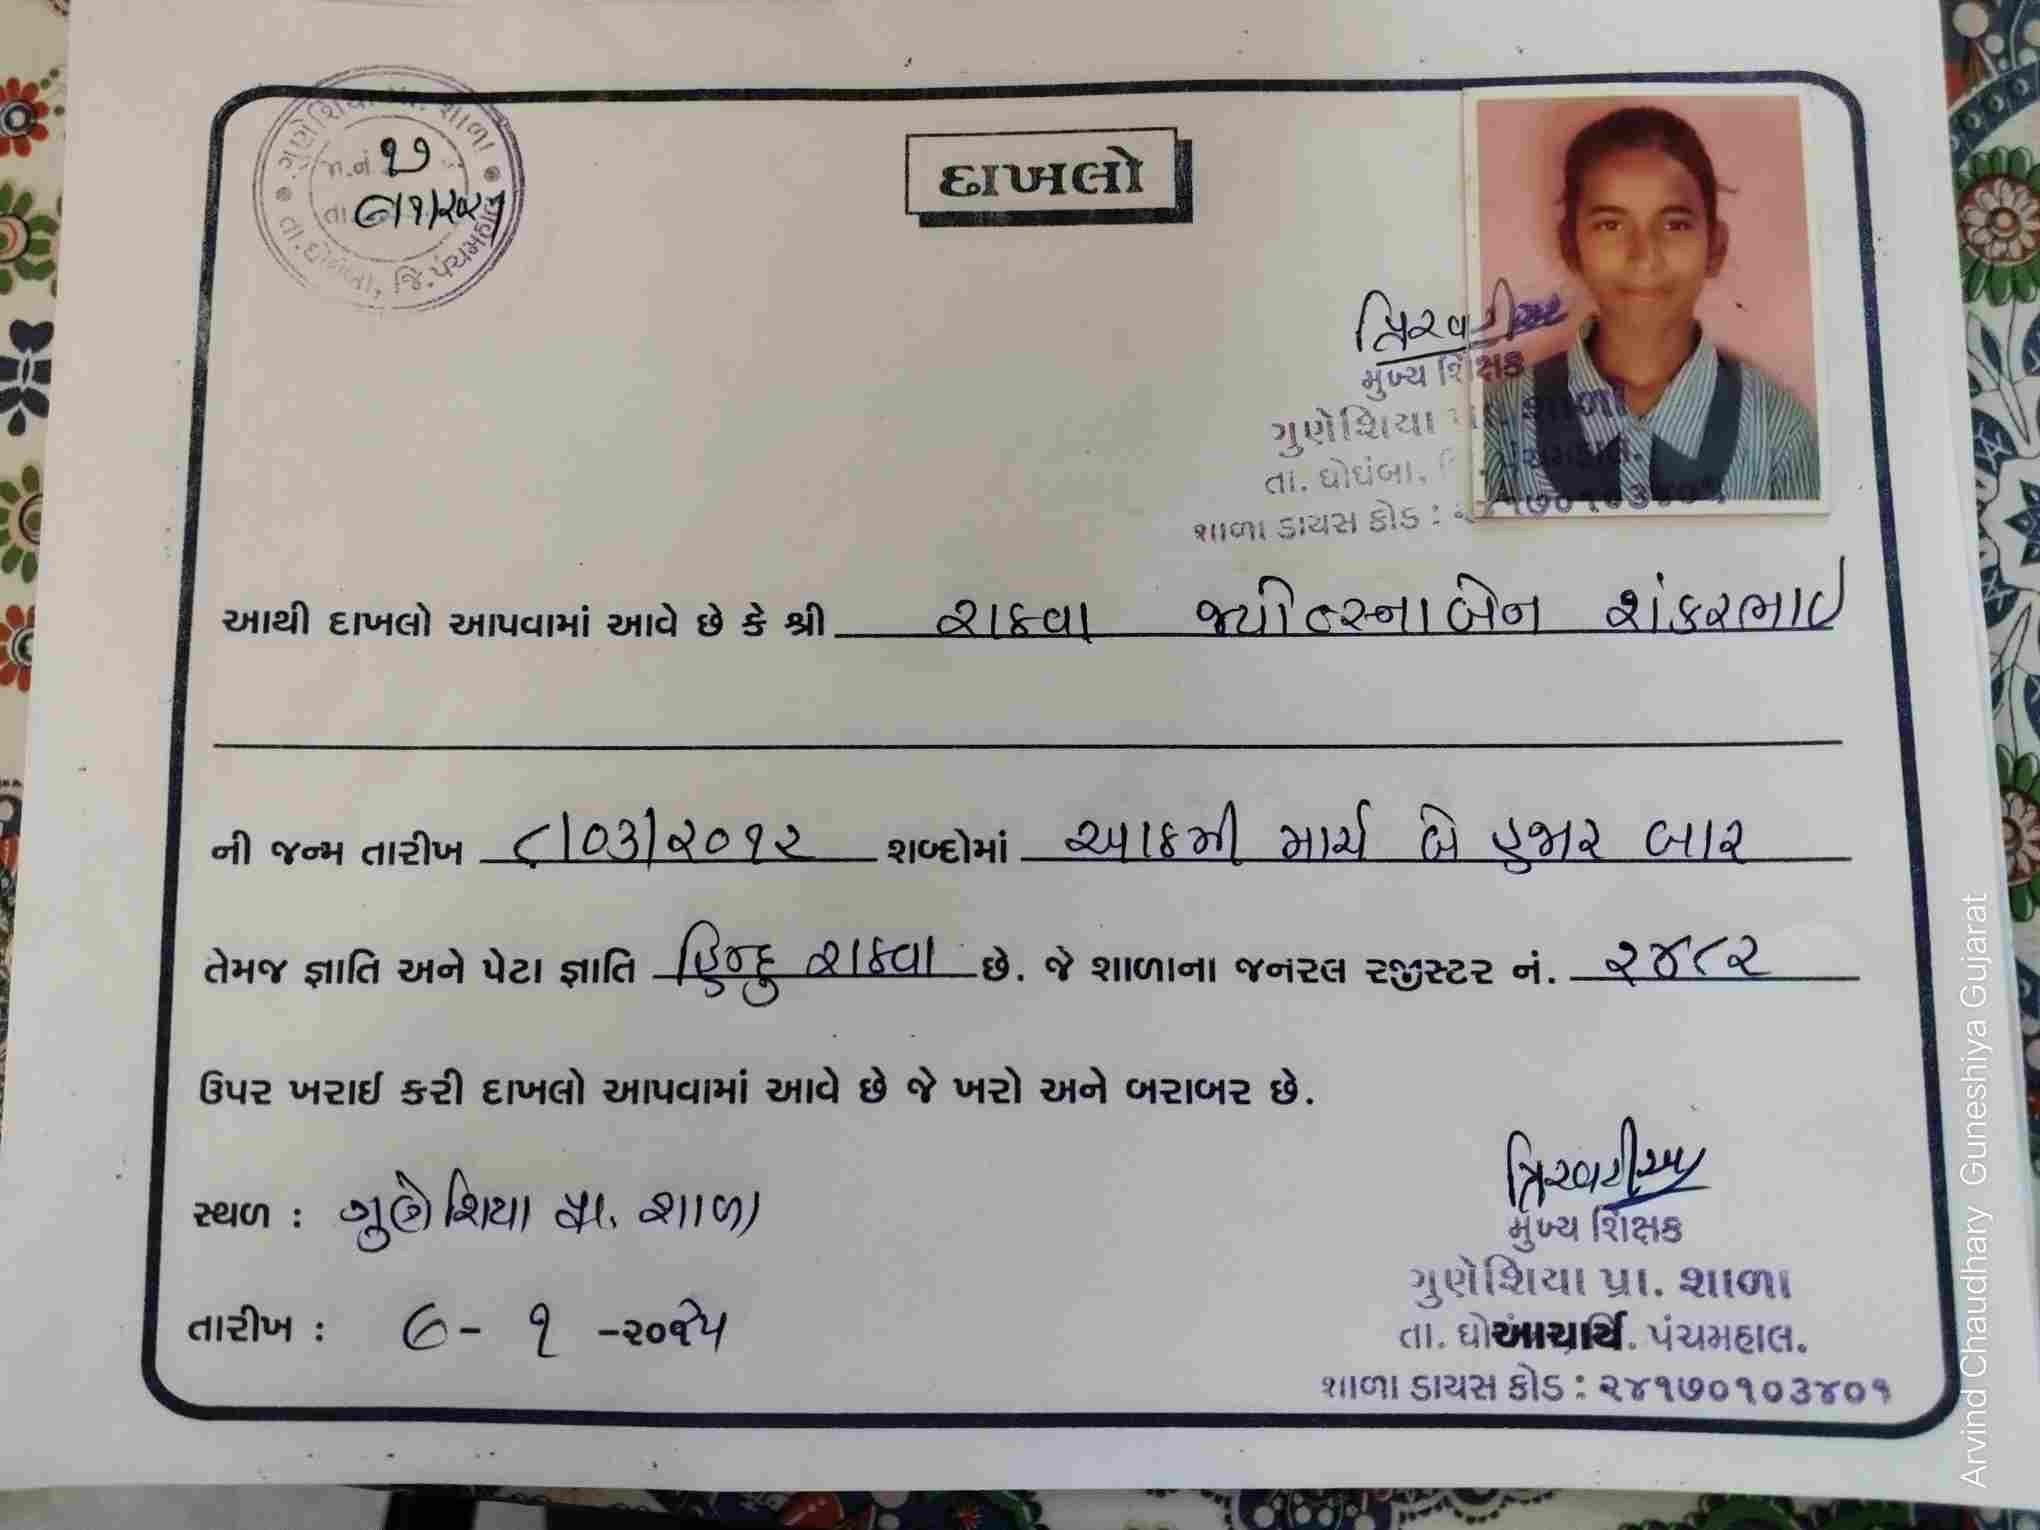 ગુણેશિયા પ્રા. શાળા
જા.નં. ૧૭
તા. ૭/૧/૨૦૨૫
તા.ઘોઘંબા, જિ.પંચમહાલ
દાખલો
મુખ્ય શિક્ષક
ગુણેશિયા પ્રા. શાળા
તા. ઘોઘંબા, જિ. પંચમહાલ.
શાળા ડાયસ કોડ : ૨૪૧૭૦૧૦૩૪૦૧
આથી દાખલો આપવામાં આવે છે કે શ્રી રાઠવા જ્યોત્સ્નાબેન શંકરભાઇ
ની જન્મ તારીખ ૮/૦૩/૨૦૧૨ શબ્દોમાં આઠમી માર્ચ બે હજાર બાર
તેમજ જ્ઞાતિ અને પેટા જ્ઞાતિ હિન્દુ રાઠવા છે. જે શાળાના જનરલ રજીસ્ટર નં. ૨૪૮૨
ઉપર ખરાઈ કરી દાખલો આપવામાં આવે છે જે ખરો અને બરાબર છે.
સ્થળ : ગુણેશિયા પ્રા. શાળા
મુખ્ય શિક્ષક
ગુણેશિયા પ્રા. શાળા
તારીખ : ૭- ૧ -૨૦૨૫
તા. ઘો આચાર્ય. પંચમહાલ.
શાળા ડાયસ કોડ : ૨૪૧૭૦૧૦૩૪૦૧
Arvind Chaudhary Guneshiya Gujarat